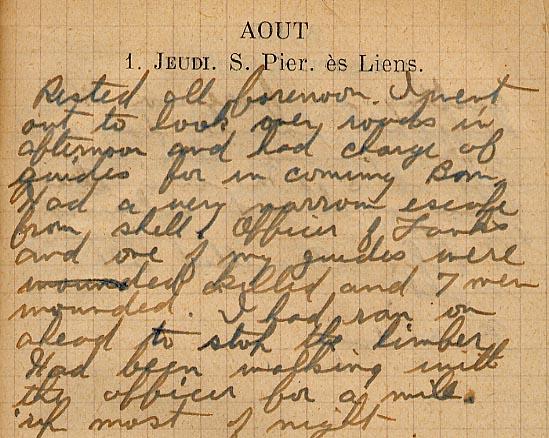 AOUT
1. JEUDI. S. Pier. ès Liens.
Rested all forenoon. I went
out to look over roads in
afternoon and had charge of
guides for in coming Bom,
Had a very narrow escape
from shell. Officer of Tanks
and one of my guides were
wounded killed and 7 men
wounded. I had ran on
ahead to stop the limber
Had been walking with
the officer for a mile.
up most of night